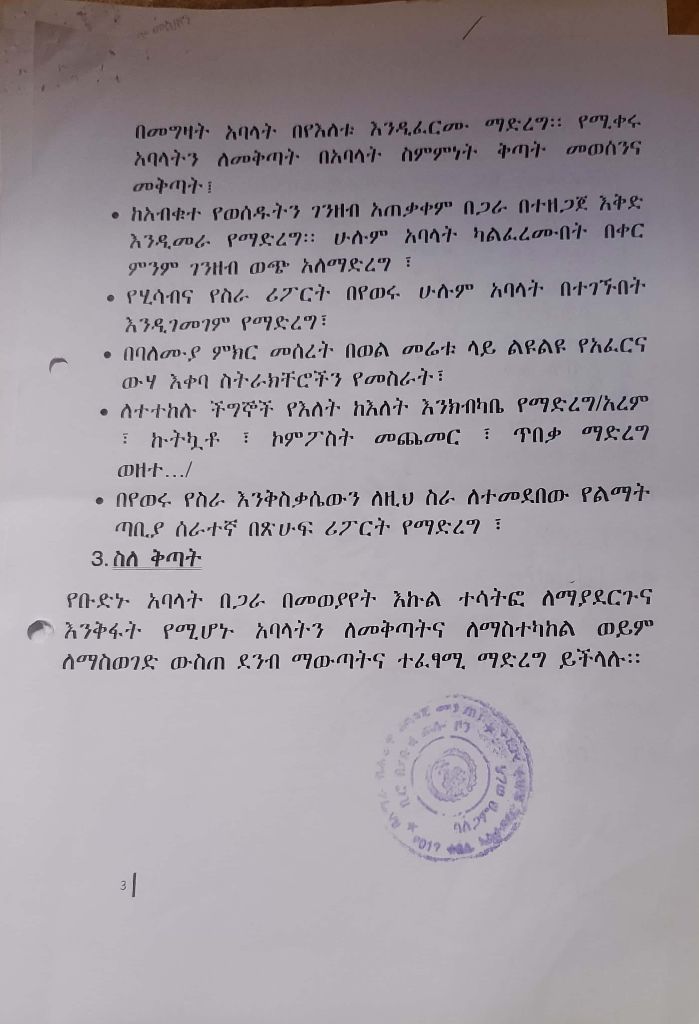 በመግዛት አባላት በየእለቱ እንዲፈርሙ ማድረግ፡፡ የሚቀሩ
አባላትን ለመቅጣት በአባላት ስምምነት ቅጣት መወሰንና
መቅጣት፤
• ከአብቁተ የወሰዱትን ገንዘብ አጠቃቀም በጋራ በተዘጋጀ እቅድ
እንዲመራ የማድረግ፡፡ ሁሉም አባላት ካልፈረሙበት በቀር
ምንም ገንዘብ ወጭ አለማድረግ ፣
• የሂሳብና የስራ ሪፖርት በየወሩ ሁሉም አባላት በተገኙበት
እንዲገመገም የማድረግ፣
• በባለሙያ ምክር መሰረት በወል መሬቱ ላይ ልዩልዩ የአፈርና
ውሃ እቀባ ስትራክቸሮችን የመስራት፣
• ለተተከሉ ችግኞች የእለት ከእለት እንክብካቤ የማድረግ/አረም
፣ ኩትኳቶ ፣ ኮምፖስት መጨመር ፣ ጥበቃ ማድረግ
ወዘተ.../
• በየወሩ የስራ እንቅስቃሴውን ለዚህ ስራ ለተመደበው የልማት
ጣቢያ ሰራተኛ በጽሁፍ ሪፖርት የማድረግ ፣
3. ስለ ቅጣት
የቡድኑ አባላት በጋራ በመወያየት እኩል ተሳትፎ ለማያደርጉና
እንቅፋት የሚሆኑ አባላትን ለመቅጣትና ለማስተካከል ወይም
ለማስወገድ ውስጠ ደንብ ማውጣትና ተፈፃሚ ማድረግ ይችላሉ፡፡
3